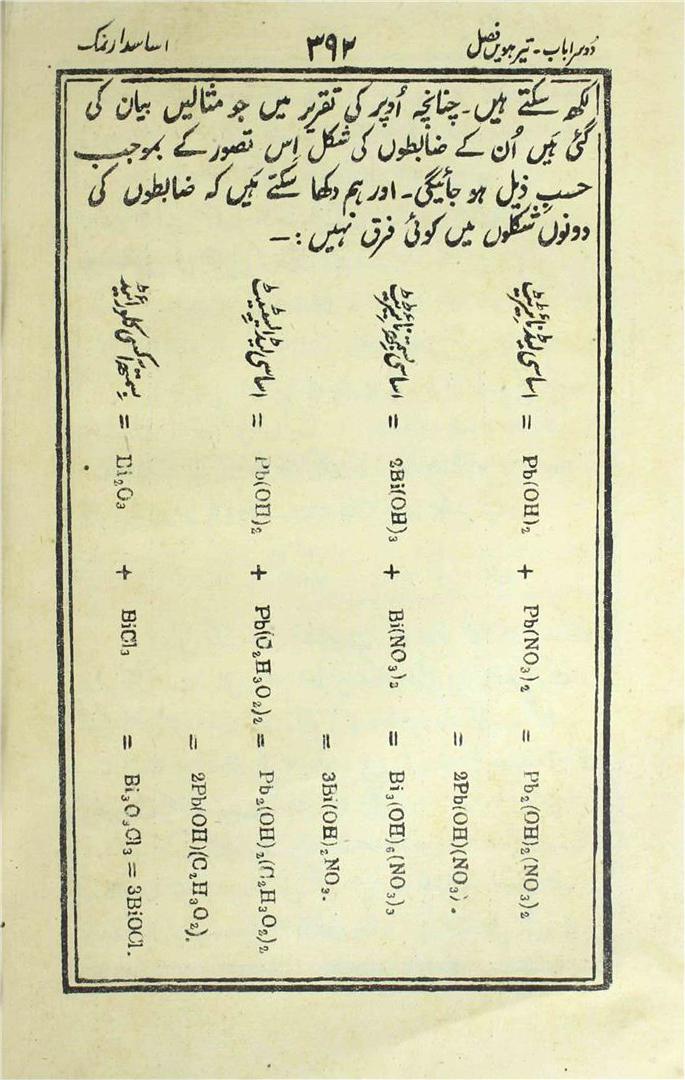 دوسرا باب - تیرھویں فصل
۳۹۲
اساسدار نمک
لکھ سکتے ہیں۔ چنانچہ اُوپر کی تقریر میں جو مثالیں بیان کی
گئی ہَیں اُن کے ضابطوں کی شکل اِس تصور کے بموجب
حسبِ ذیل ہو جائیگی۔ اور ہم دکھا سکتے ہَیں کہ ضابطوں کی
دونوں شکلوں میں کوئی فرق نہیں :۔
اساسی لیڈ نائٹریٹ = Pb(OH)₂ + Pb(NO₃)₂ = Pb₂(OH)₂(NO₃)₂
= 2Pb(OH)(NO₃).
اساسی بسمتھ نائٹریٹ = 2Bi(OH)₃ + Bi(NO₃)₃ = Bi₃(OH)₆(NO₃)₃
= 3Bi(OH)₂NO₃.
اساسی لیڈ ایسٹیٹ = Pb(OH)₂ + Pb(C₂H₃O₂)₂ = Pb₂(OH)₂(C₂H₃O₂)₂
= 2Pb(OH)(C₂H₃O₂).
بسمتھ آکسی کلورائیڈ = Bi₂O₃ + BiCl₃ = Bi₃O₃Cl₃ = 3BiOCl.